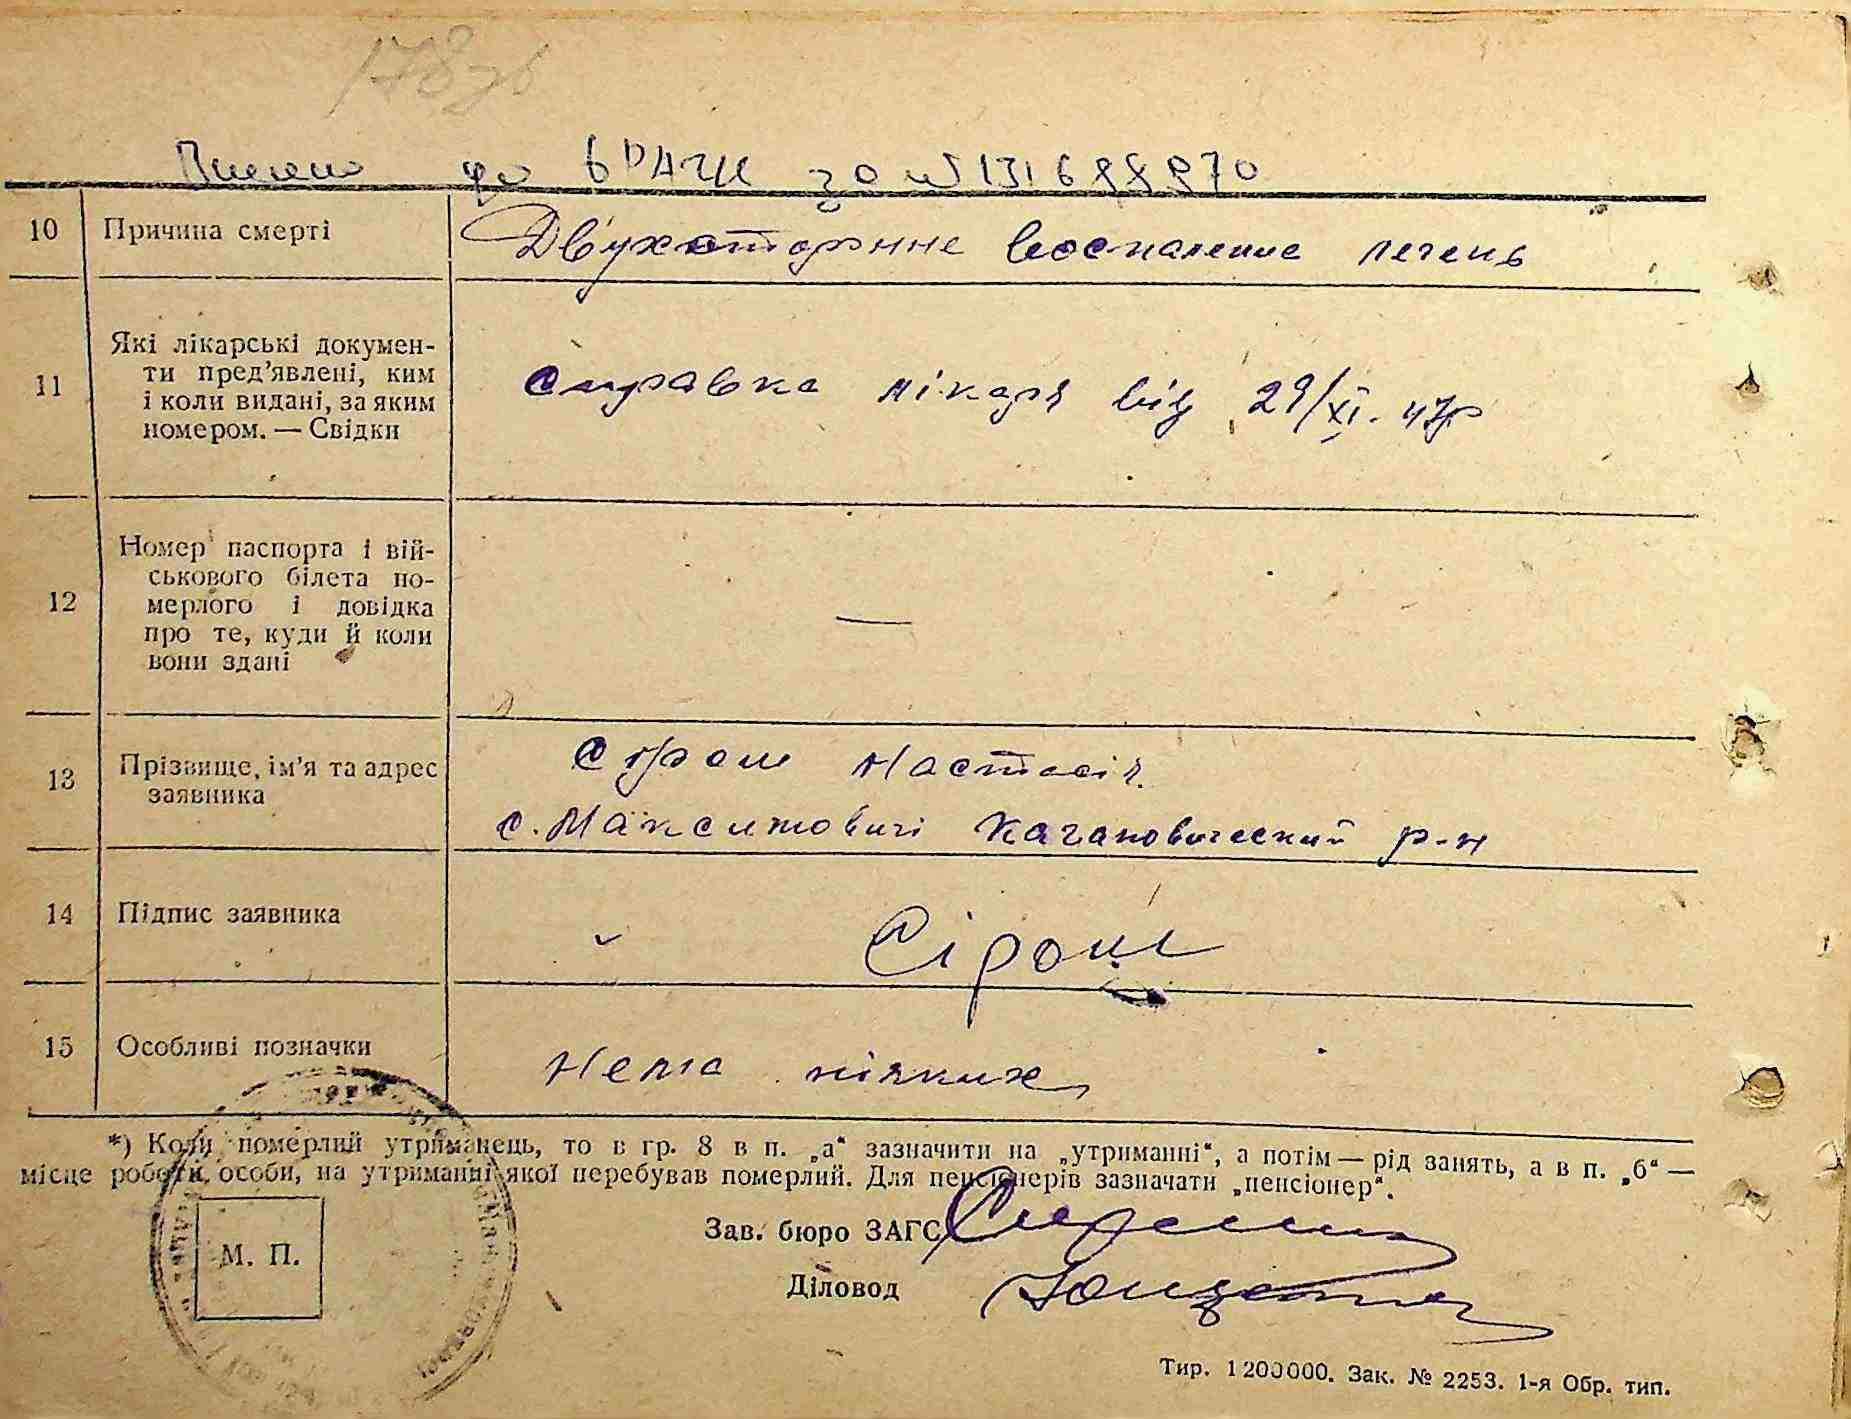 178зв
до ДРАЦС за № 00131688970
10 Причина смерті Двухсторннє воспаление печень
11 Які лікарські докумен-
ти пред'явлені, ким
і коли видані, за яким
номером. — Свідки
Справка лікаря від 29/XI. 47р
12 Номер паспорта і вій-
ськового білета по-
мерлого і довідка
про те, куди й коли
вони здані
—
13 Прізвище, ім'я та адрес
заявника
Сірош Настасія.
с. Максимовичі Кагановический р-н
14 Підпис заявника Сірош
15 Особливі позначки Нема ніяких
*) Коли померлий утриманець, то в гр. 8 в п. „а“ зазначити на „утриманні“, а потім — рід занять, а в п. „б“ —
місце роботи особи, на утриманні якої перебував померлий. Для пенсіонерів зазначати „пенсіонер“.
Зав. бюро ЗАГС
М. П.
Діловод
Тир. 1200000. Зак. № 2253. 1-я Обр. тип.